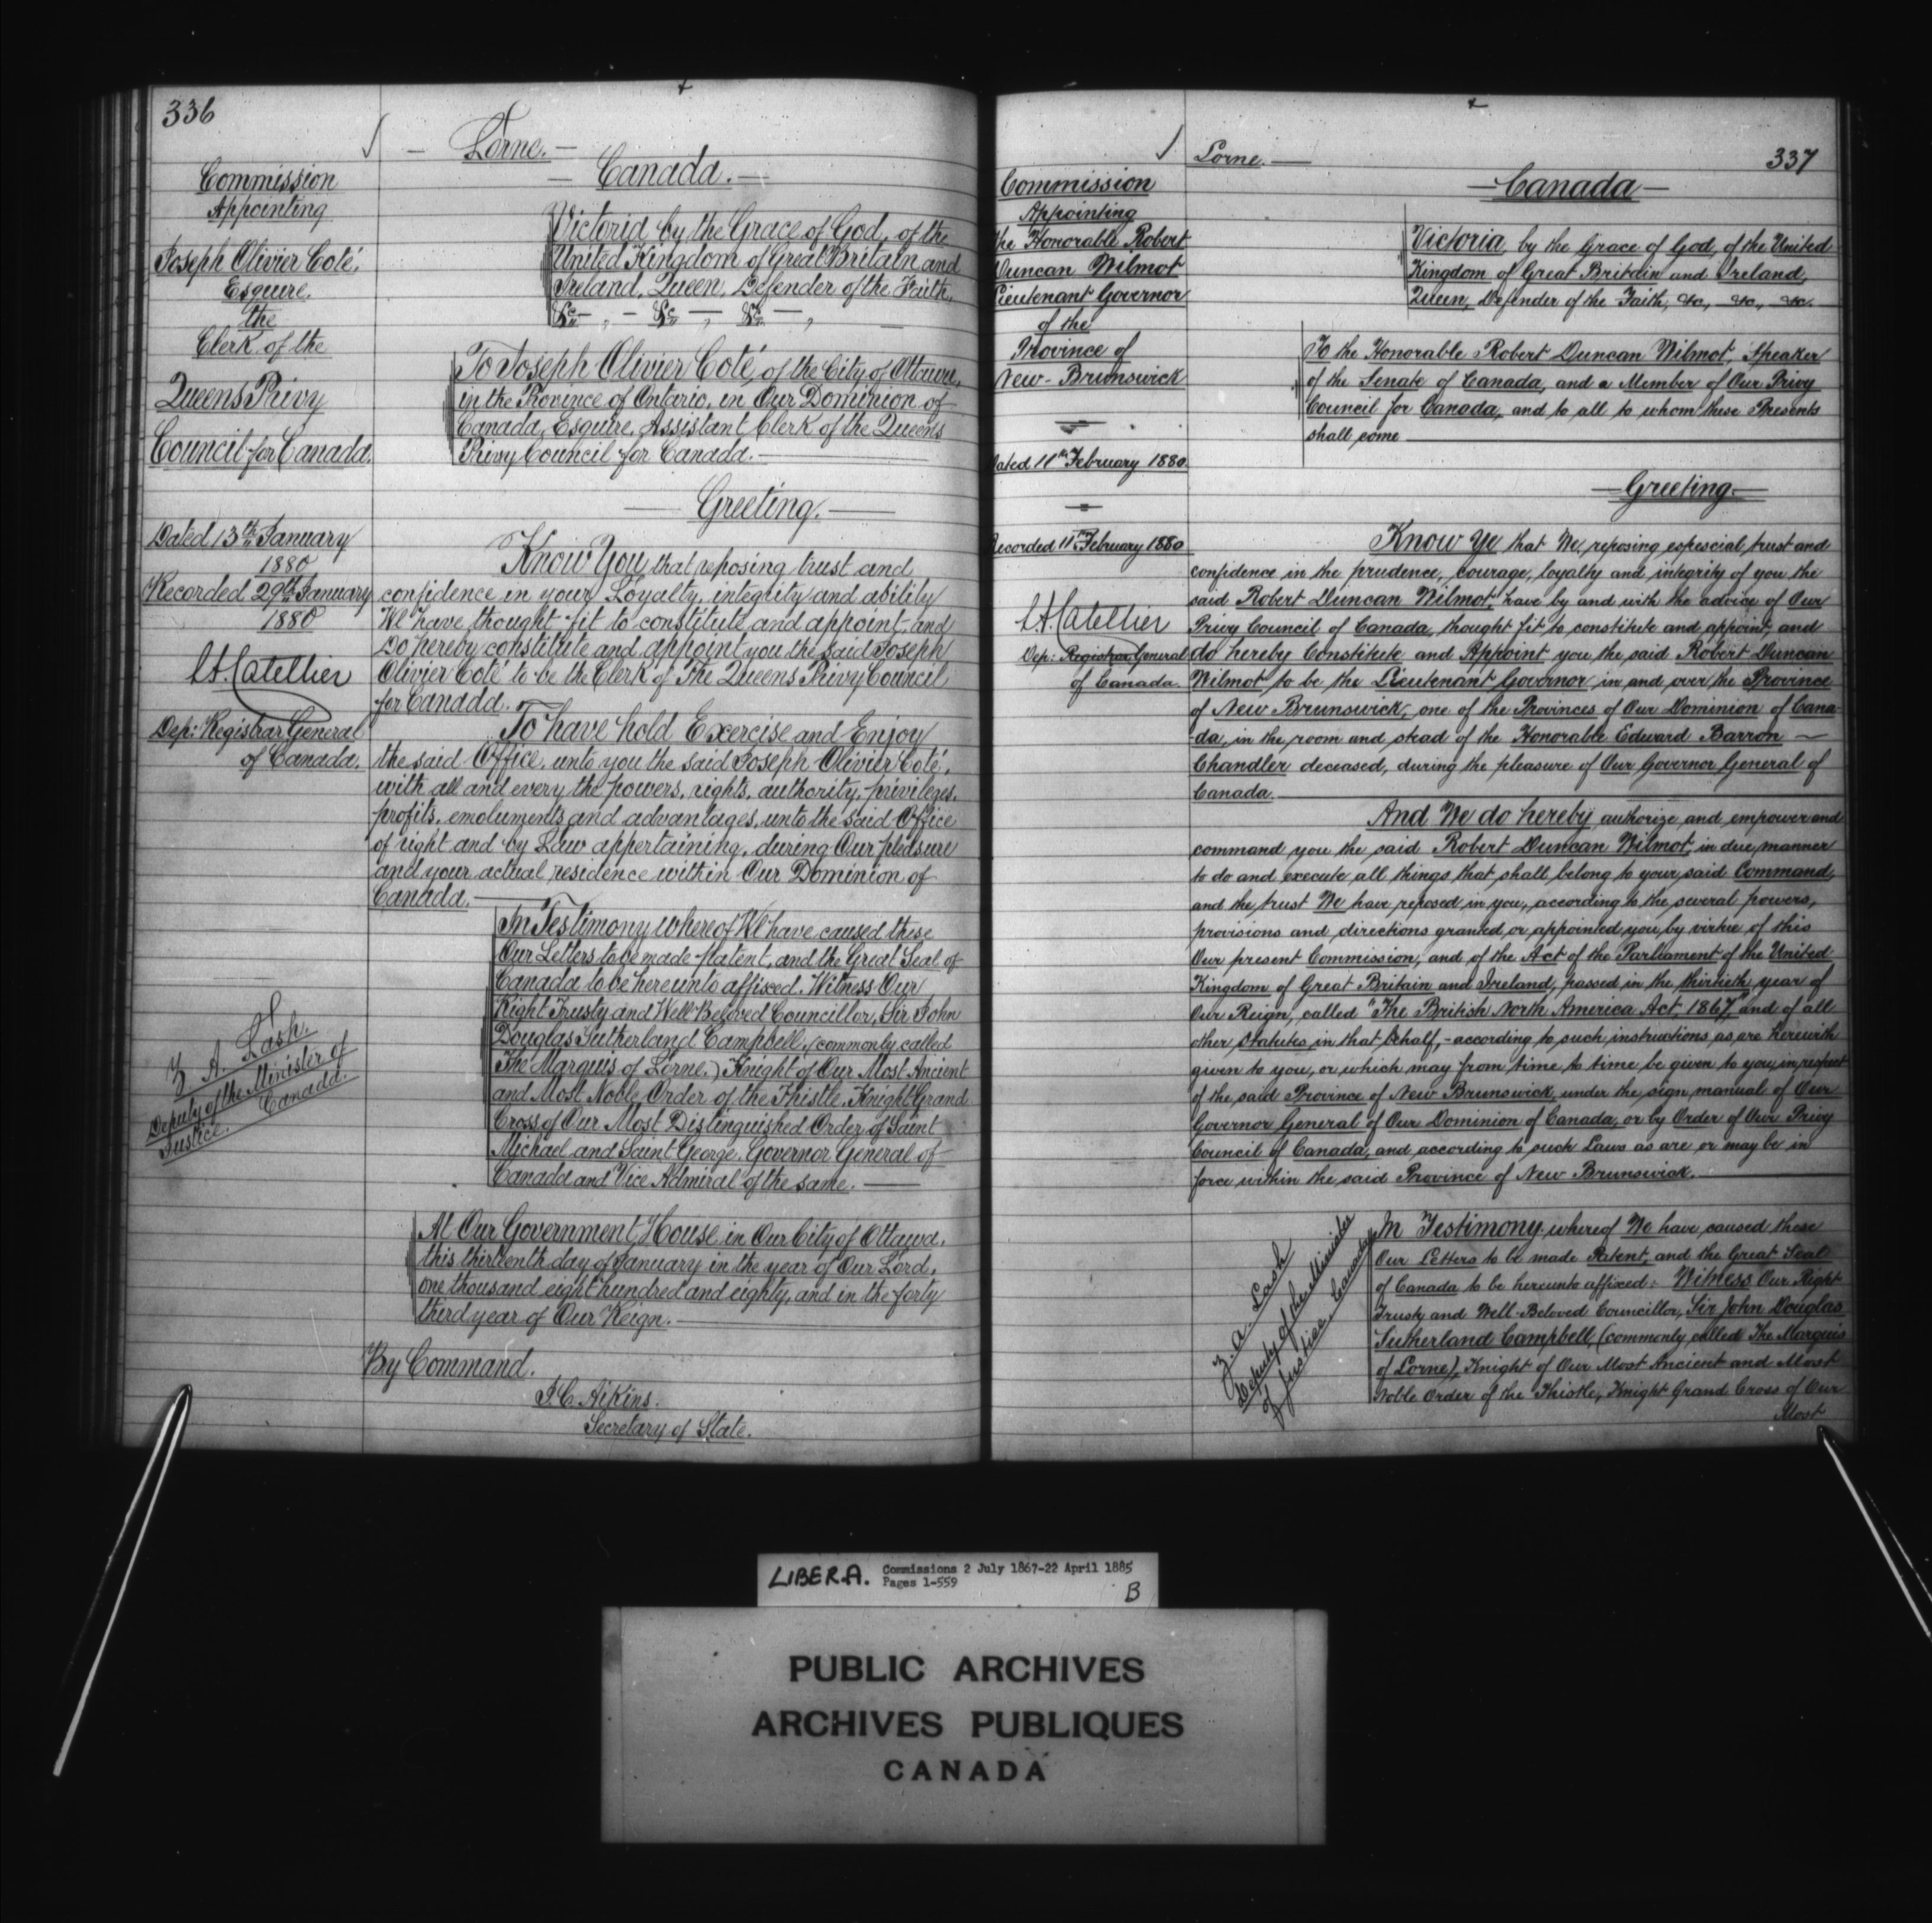 336
Lorne.
Canada.
Commission
Appointing
Joseph Olivier Coté,
Esquire,
the
Clerk of the
Queens Privy
Council for Canada.
Dated 13th January
1880
Recorded 29th January
1880
L. A. Catellier
Dep: Registrar General
of Canada.
Z. A. Lash.
Deputy of the Minister of
Justice. Canada.
Victoria by the Grace of God, of the
United Kingdom of Great Britain and
Ireland, Queen, Defender of the Faith,
&c. — &c. — &c. —
To Joseph Olivier Coté, of the City of Ottawa,
in the Province of Ontario, in Our Dominion of
Canada, Esquire, Assistant Clerk of the Queens
Privy Council for Canada.
Greeting.
Know You that reposing trust and
confidence in your Loyalty, integrity and ability
We have thought fit to constitute and appoint, and
Do hereby constitute and appoint you the said Joseph
Olivier Coté to be the Clerk of The Queens Privy Council
for Canada.
To have hold Exercise and Enjoy
the said Office, unto you the said Joseph Olivier Coté,
with all and every the powers, rights, authority, privileges,
profits, emoluments and advantages, unto the said Office
of right and by Law appertaining, during Our pleasure
and your actual residence within Our Dominion of
Canada.
In Testimony whereof We have caused these
Our Letters to be made patent, and the Great Seal of
Canada to be hereunto affixed. Witness Our
Right Trusty and Well Beloved Councillor, Sir John
Douglas Sutherland Campbell, (commonly called
The Marquis of Lorne,) Knight of Our Most Ancient
and Most Noble Order of the Thistle, Knight Grand
Cross of Our Most Distinguished Order of Saint
Michael and Saint George. Governor General of
Canada and Vice Admiral of the same.
At Our Government House in Our City of Ottawa,
this thirteenth day of January in the year of Our Lord,
one thousand eight hundred and eighty, and in the forty
third year of Our Reign.
By Command.
J. C. Aikins.
Secretary of State.
Lorne.
337
Canada
Commission
Appointing
the Honorable Robert
Duncan Wilmot
Lieutenant Governor
of the
Province of
New-Brunswick
Dated 11th February 1880
Recorded 11th February 1880
L. A. Catellier
Dep: Registrar General
of Canada.
Victoria, by the Grace of God, of the United
Kingdom of Great Britain and Ireland,
Queen, Defender of the Faith, &c., &c., &c.
To the Honorable Robert Duncan Wilmot, Speaker
of the Senate of Canada, and a Member of Our Privy
Council for Canada, and to all to whom these Presents
shall come
Greeting
Know Ye that We, reposing espescial trust and
confidence in the prudence, courage, loyalty and integrity of you the
said Robert Duncan Wilmot, have by and with the advice of Our
Privy Council of Canada, thought fit to constitute and appoint, and
do hereby Constitute and Appoint you the said Robert Duncan
Wilmot to be the Lieutenant Governor in and over the Province
of New Brunswick, one of the Provinces of Our Dominion of Cana-
da, in the room and stead of the Honorable Edward Barron
Chandler deceased, during the pleasure of Our Governor General of
Canada.
And We do hereby authorize and empower and
command you the said Robert Duncan Wilmot, in due manner
to do and execute all things that shall belong to your said Command,
and the trust We have reposed in you, according to the several powers,
provisions and directions granted or appointed you by virtue of this
Our present Commission, and of the Act of the Parliament of the United
Kingdom of Great Britain and Ireland, passed in the thirtieth year of
Our Reign, called "The British North America Act, 1867," and of all
other Statutes in that behalf,- according to such instructions as are herewith
given to you, or which may from time to time be given to you, in respect
of the said Province of New Brunswick, under the sign manual of Our
Governor General of Our Dominion of Canada, or by Order of Our Privy
Council of Canada, and according to such Laws as are or may be in
force within the said Province of New Brunswick.
Z. A. Lash
Deputy of the Minister
of Justice, Canada
In Testimony whereof We have caused these
Our Letters to be made Patent, and the Great Seal
of Canada to be hereunto affixed: Witness Our Right
Trusty and Well-Beloved Councillor, Sir John Douglas
Sutherland Campbell, (commonly called The Marquis
of Lorne), Knight of Our Most Ancient and Most
Noble Order of the Thistle, Knight Grand Cross of Our
Most
LIBER.A. Commissions 2 July 1867-22 April 1885
Pages 1-559
B
PUBLIC ARCHIVES
ARCHIVES PUBLIQUES
CANADA